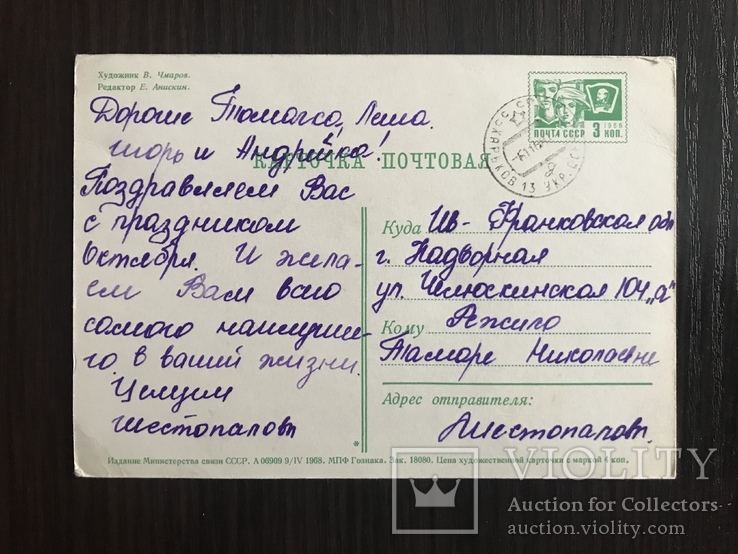 Художник В. Чмаров.
Редактор Е. Анискин.
Дорогие Томачка, Леша
Игорь и Андрейка!
КАРТОЧКА ПОЧТОВАЯ
Поздравляем Вас
с праздником
Октября. И жела-
ем Вам всего
самого наилучше-
го в вашей жизни.
Целуем
Шестопалов
ПОЧТА СССР 3 КОП.
1966
ХАРЬКОВ 13 УКР.ССР
Куда Ив-Франковская обл
г. Надворная
ул. Челюскинская 104 „а"
Кому
Тамаре Николаевне
Адрес отправителя:
Шестопалов.
*
Издание Министерства связи СССР. А 06909 9/IV 1968. МПФ Гознака. Зак. 18080. Цена художественной карточки с маркой 4 коп.
VIOLITY
Auction for Collectors
auction.violity.com